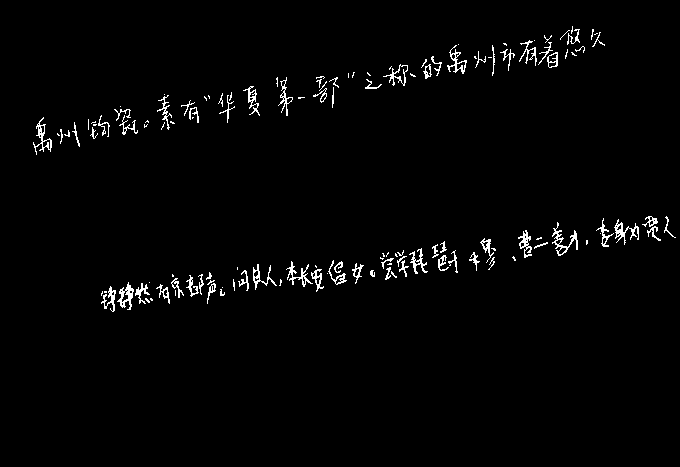 禹州钧瓷。素有"华夏第一部"之称的禹州市有着悠久
铮铮然有京都声。问其人,本长安倡女。尝学琵琶于穆、曹二善才,委身为贾人